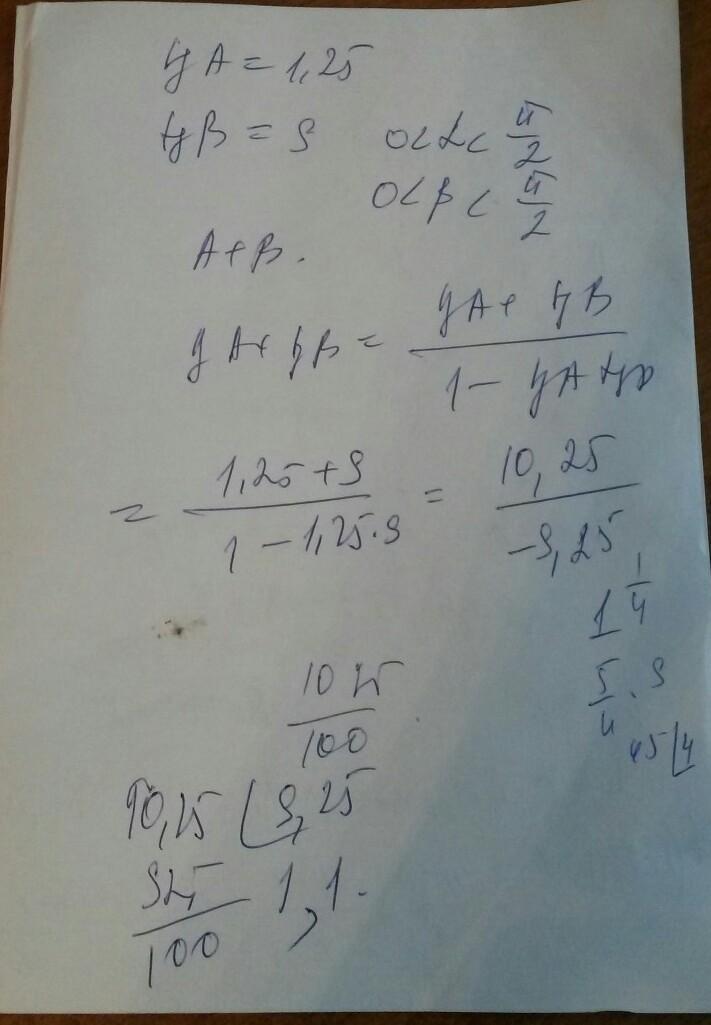 tg A = 1,25
tg B = 9 0 < α < π/2
0 < β < π/2
A + B.
tg A + tg B = (tg A + tg B) / (1 - tg A tg B)
= (1,25 + 9) / (1 - 1,25 · 9) = 10,25 / -9,25
1 1/4
5/4 · 9
45 4
1025/100
10,25 9,25
925/100 1,1.